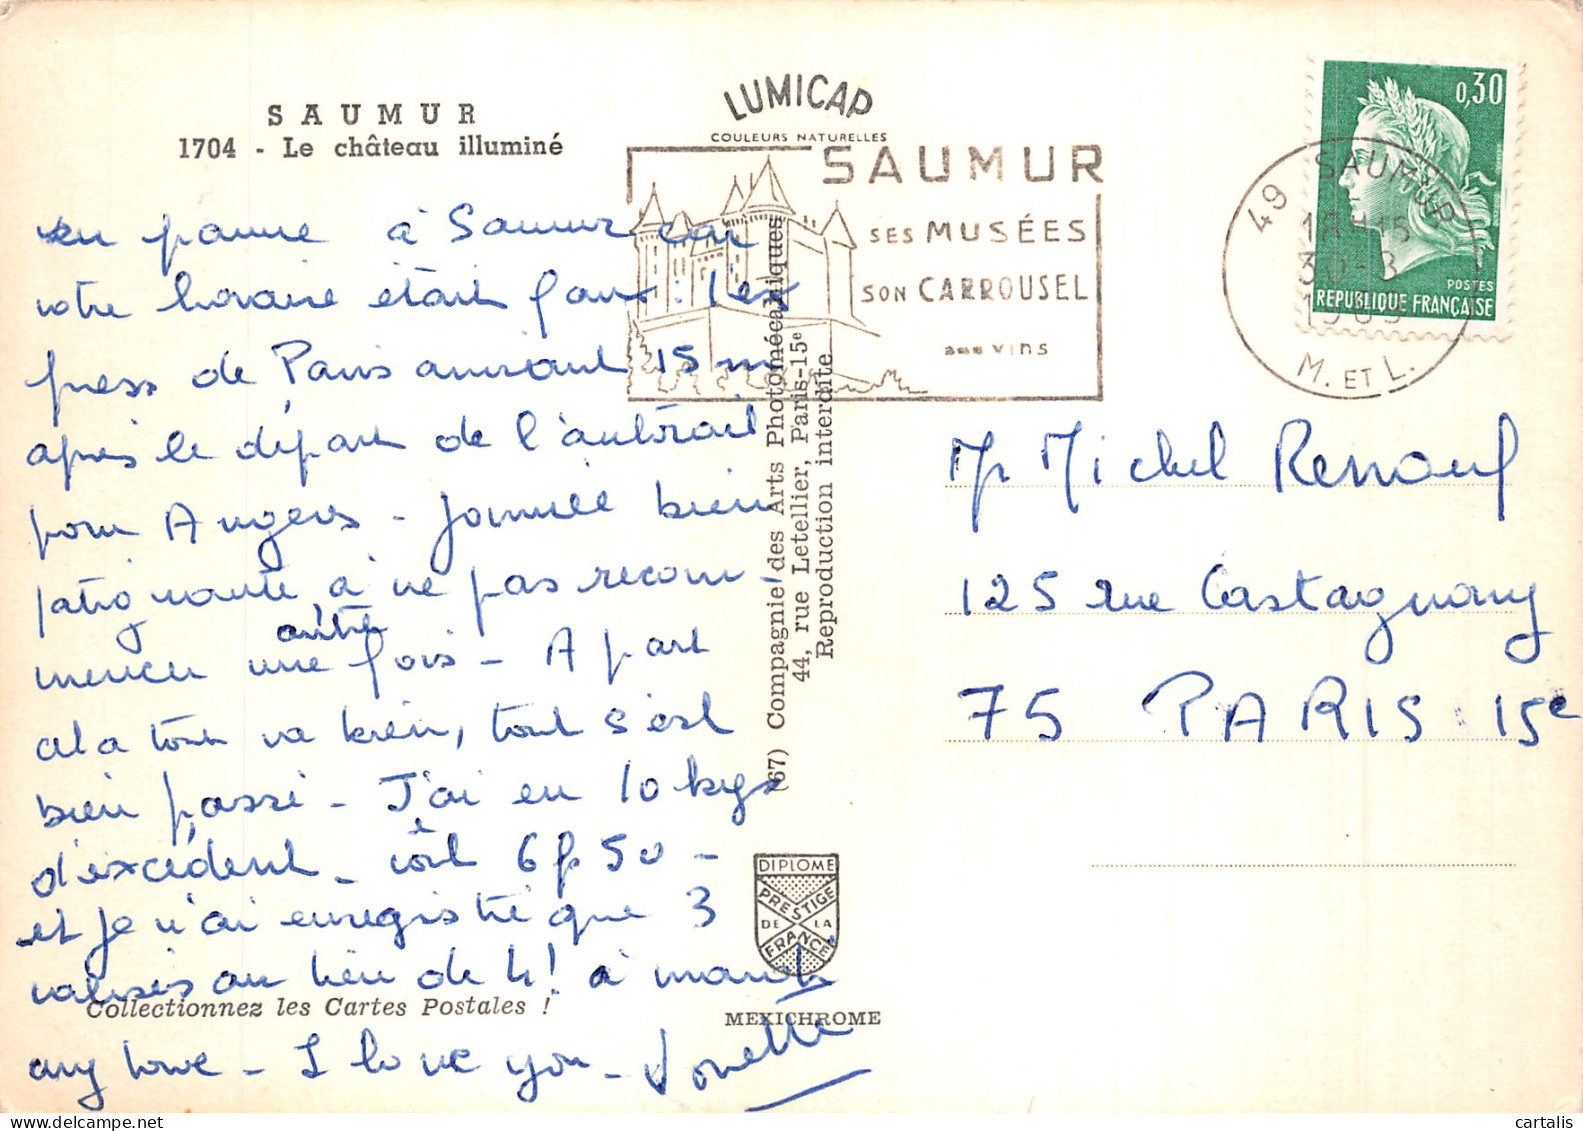 SAUMUR
1704 - Le château illuminé
en panne à Saumur car
votre horaire était faux : Lex
press de Paris arrivant 15 m
après le départ de l'autorail
pour Angers - Journée bien
fatigante, à ne pas recom-
mencer une autre fois - A part
cela tout va bien, tout s'est
bien passé - J'ai eu 10 kgs
d'excédent - coût 6f 50 -
et je n'ai enregistré que 3
valises au lieu de 4 !
any love - I love you -
Collectionnez les Cartes Postales !
LUMICAP
COULEURS NATURELLES
SAUMUR
SES MUSÉES
SON CARROUSEL
ses vins
(67) Compagnie des Arts Photomécaniques
44, rue Letellier, Paris-15e
Reproduction interdite
DIPLOME
PRESTIGE
DE LA
FRANCE
MEXICHROME
0,30
POSTES
REPUBLIQUE FRANÇAISE
49 SAUMUR
18H15
30-3
1969
M. ET L.
Mr Michel Renouf
125 rue Castagnary
75 PARIS 15e
cartalis